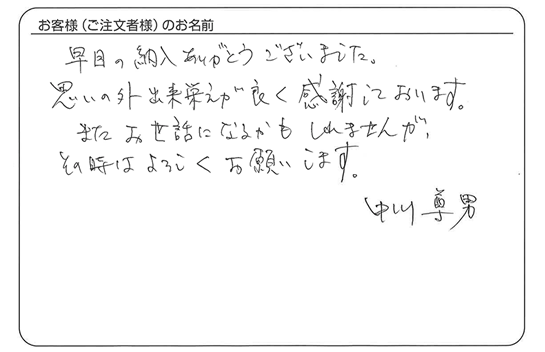 お客様（ご注文者様）のお名前
早目の納入ありがとうございました。
思いの外出来栄えが良く感謝しております。
またお世話になるかもしれませんが、
その時はよろしくお願いします。
中川 尊男